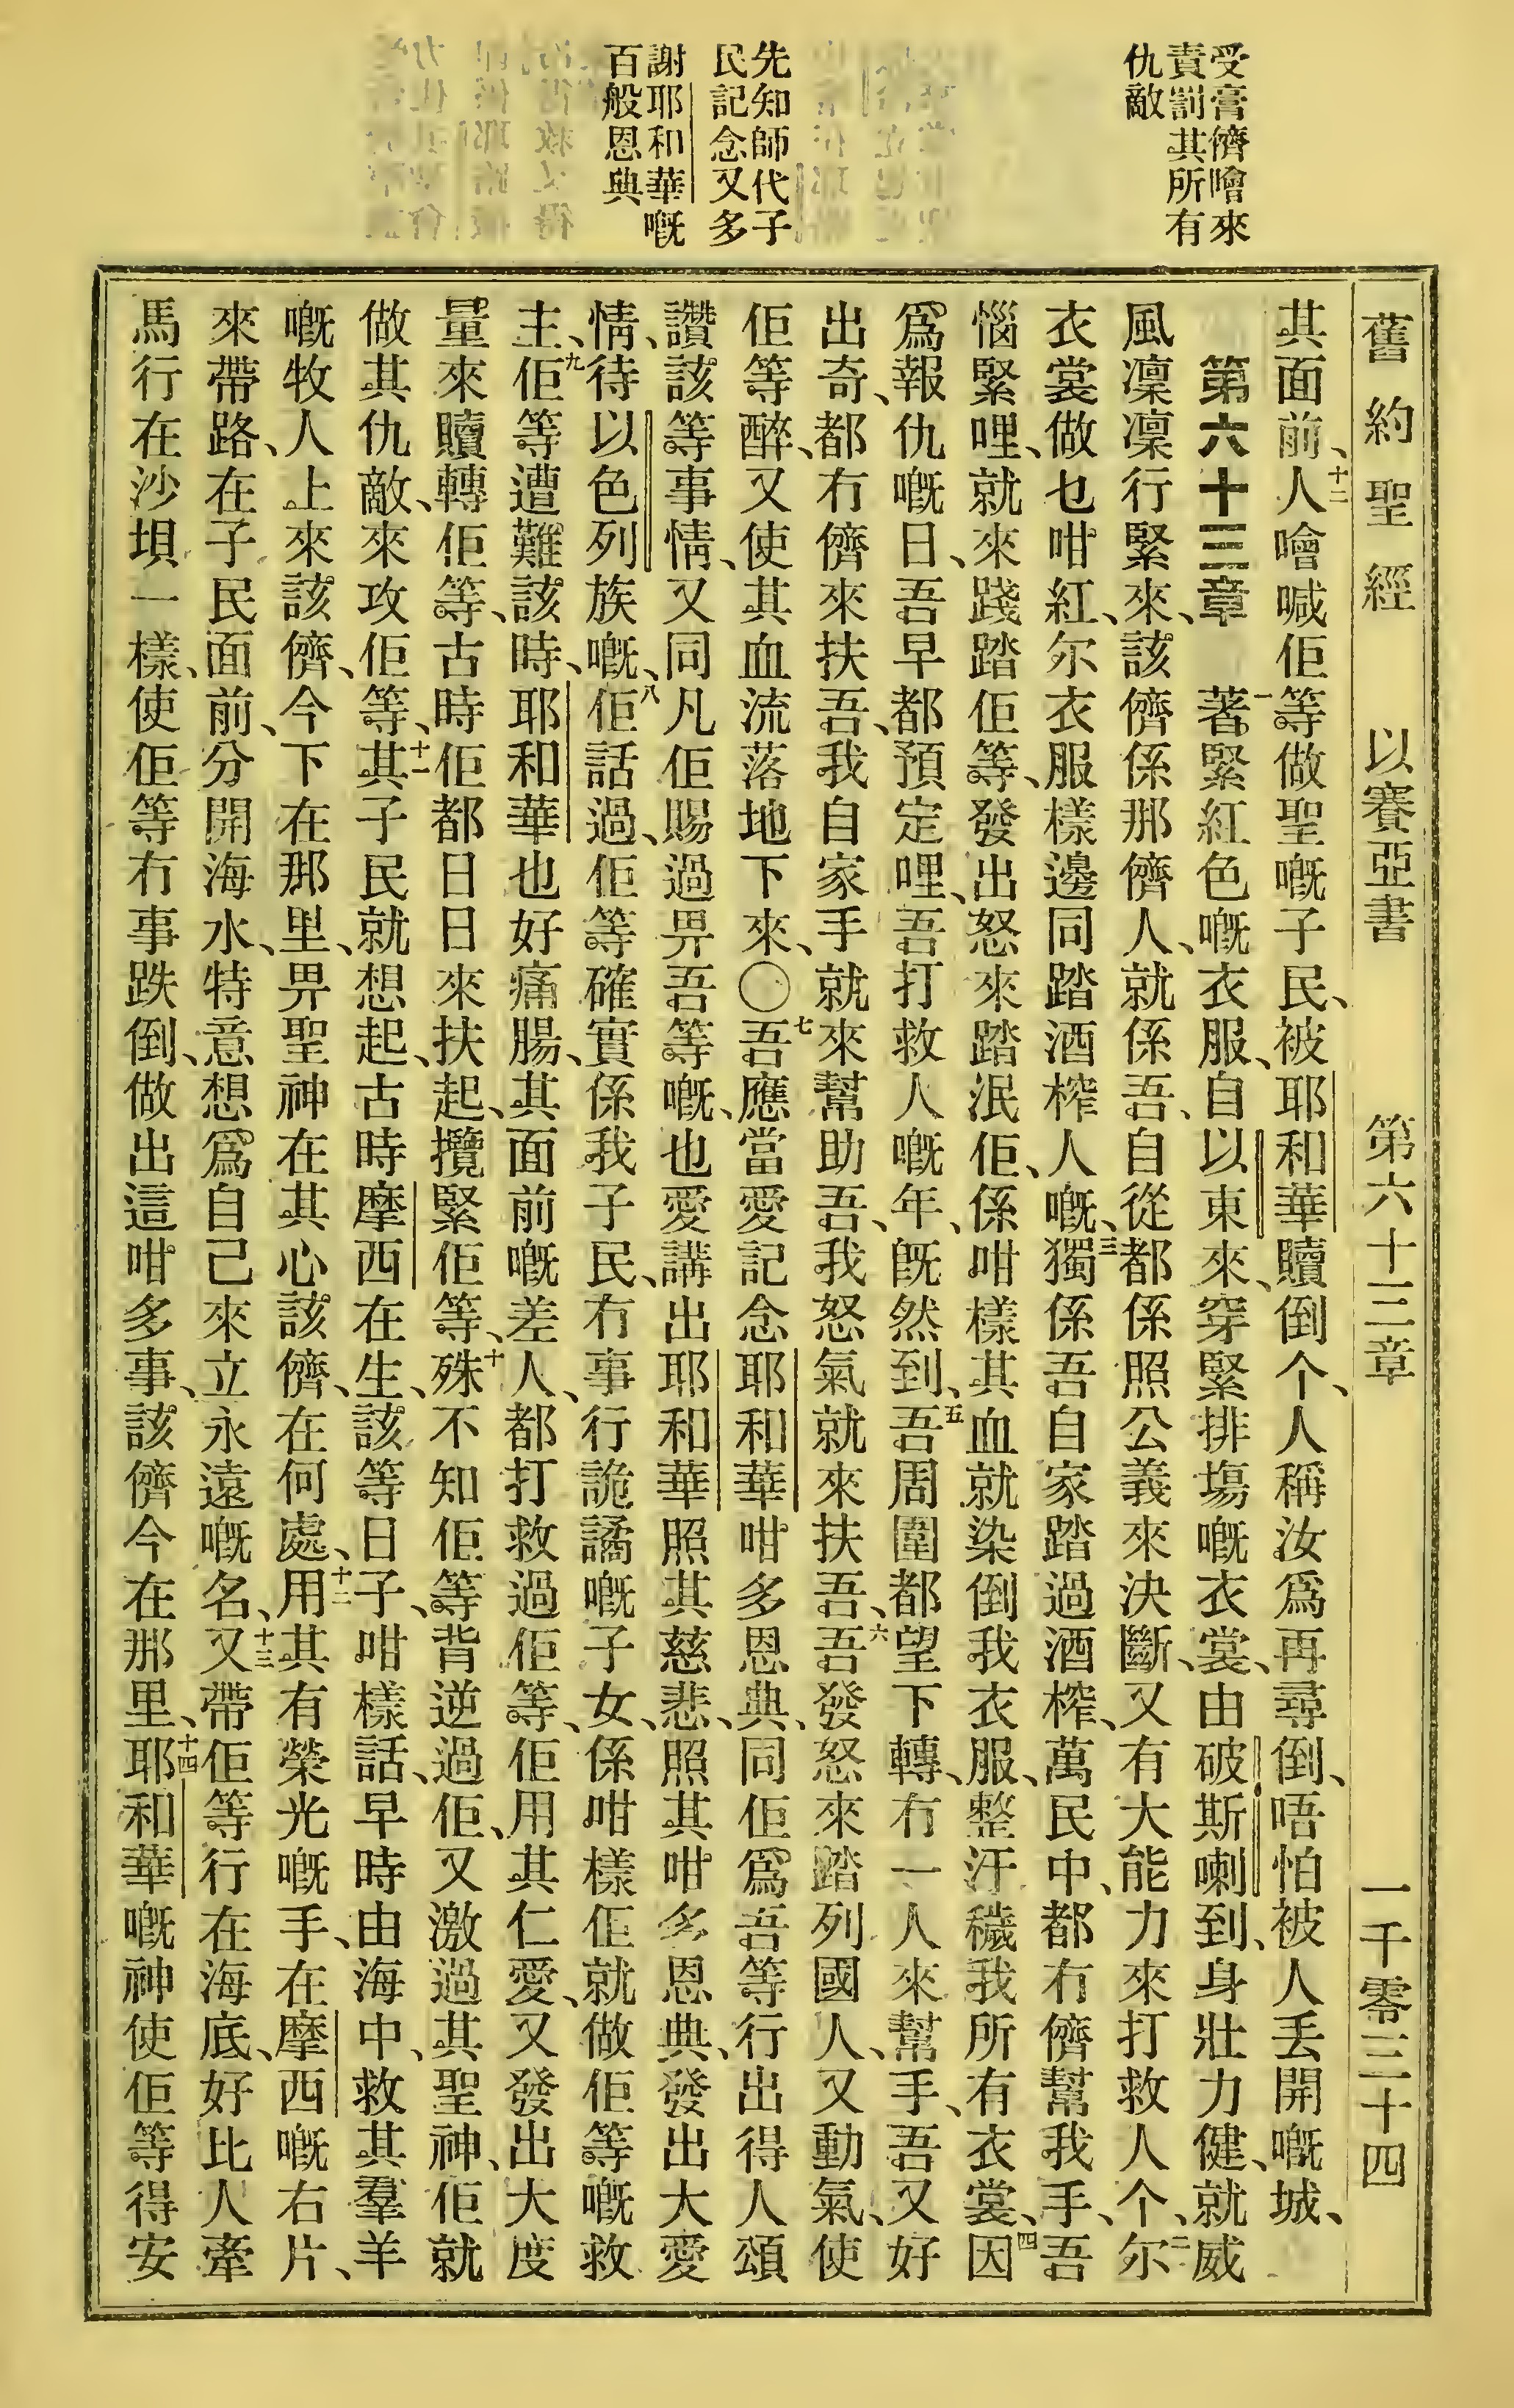 受膏儕噲來
責罰其所有
仇敵
先知師代子
民記念又多
謝耶和華嘅
百般恩典
舊約聖經 以賽亞書 第六十三章 一千零三十四
其面前、十二人噲喊佢等做聖嘅子民、被耶和華贖倒个、人稱汝爲再尋倒、唔怕被人丢開嘅城、
第六十三章 一著緊紅色嘅衣服、自以東來、穿緊排塲嘅衣裳、由破斯喇到、身壯力健、就威
風凜凜行緊來、該儕係那儕人、就係吾、自從都係照公義來決斷、又有大能力來打救人个、二尔
衣裳做乜咁紅、尔衣服樣邊同踏酒榨人嘅、三獨係吾自家踏過酒榨、萬民中、都冇儕幫我手、吾
惱緊哩、就來踐踏佢等、發出怒來踏泯佢、係咁樣其血就染倒我衣服、整汙穢我所有衣裳、四因
爲報仇嘅日、吾早都預定哩、吾打救人嘅年、旣然到、五吾周圍都望下轉、冇一人來幫手、吾又好
出奇、都冇儕來扶吾、我自家手就來幫助吾、我怒氣就來扶吾、六吾發怒來踏列國人、又動氣、使
佢等醉、又使其血流落地下來、〇七吾應當愛記念耶和華咁多恩典、同佢爲吾等行出得人頌
讚該等事情、又同凡佢賜過畀吾等嘅、也愛講出耶和華照其慈悲、照其咁多恩典、發出大愛
情、待以色列族嘅、八佢話過、佢等確實係我子民、冇事行詭譎嘅子女、係咁樣佢就做佢等嘅救
主、九佢等遭難該時、耶和華也好痛腸、其面前嘅差人、都打救過佢等、佢用其仁愛、又發出大度
量來贖轉佢等、古時佢都日日來扶起、攬緊佢等、十殊不知佢等背逆過佢、又激過其聖神、佢就
做其仇敵、來攻佢等、十一其子民就想起、古時摩西在生、該等日子、咁樣話、早時由海中、救其羣羊
嘅牧人上來該儕、今下在那里、畀聖神在其心該儕、在何處、十二用其有榮光嘅手、在摩西嘅右片、
來帶路、在子民面前、分開海水、特意想爲自己來立永遠嘅名、十三又帶佢等行在海底、好比人牽
馬行在沙垻一樣、使佢等冇事跌倒、做出這咁多事、該儕今在那里、十四耶和華嘅神使佢等得安